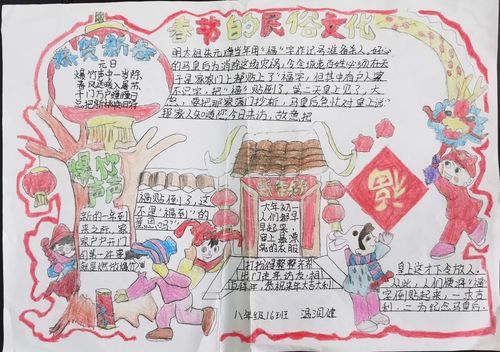 春节的民俗文化
恭贺新春
元日
爆竹声中一岁除,
春风送暖入屠苏,
千门万户曈曈日
总把新桃换旧符
明太祖朱元璋当年用"福"字作记号准备杀人。好心
的马皇后为消除这场灾祸,令全城老百姓必须在天
于是家家门上都贴上了"福字"但其中有户人家
不识字,把"福"贴倒了。第二天皇上见了,大
怒,要把那家满门抄斩。马皇后急忙对皇上说:"
那家人知道您今日来访,故意把
福贴倒了,这
不是"福到"的
意思吗?"
皇上这才下令放人,
从此,人们便将"福"
字倒贴起来,一求吉
利,二为纪念马皇后。
爆竹
声声
新的一年到
来之际,家
家户户开门
的第一件事
就是燃放爆竹
大年初一
人们都早
早起来,
穿上最漂
亮的衣服
打扮得整整齐齐
出门走亲访友,相
互拜年,恭祝来年大吉大利
福
八年级16班 温润健